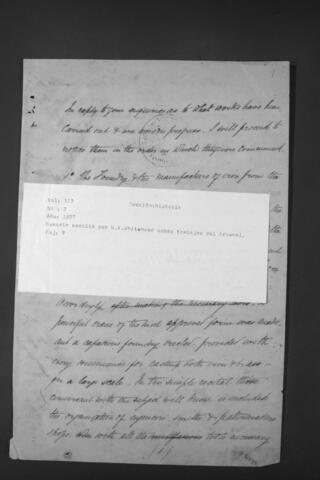 In reply to your enquiries as to what works have been
carried out & are now in progress. I will proceed to
notice them in the order in which they were commenced.
1º The Foundry & the manufacture of iron from the
Vol: 323 Sección:Historia
Nº : 7
Año: 1857
Memoria escrita por W.K.Whitehead sobre trabajos del Arsenal.
Foj: 9
Accordingly after making the necessary
powerful crane of the most approved form was made
and a capacious foundry erected, provided with
every convenience for casting both iron & brass
on a large scale. In this simple recital, those
conversant with the subject will know is included
the organization of engineers, smiths & patternmakers
shops, with all the tools necessary